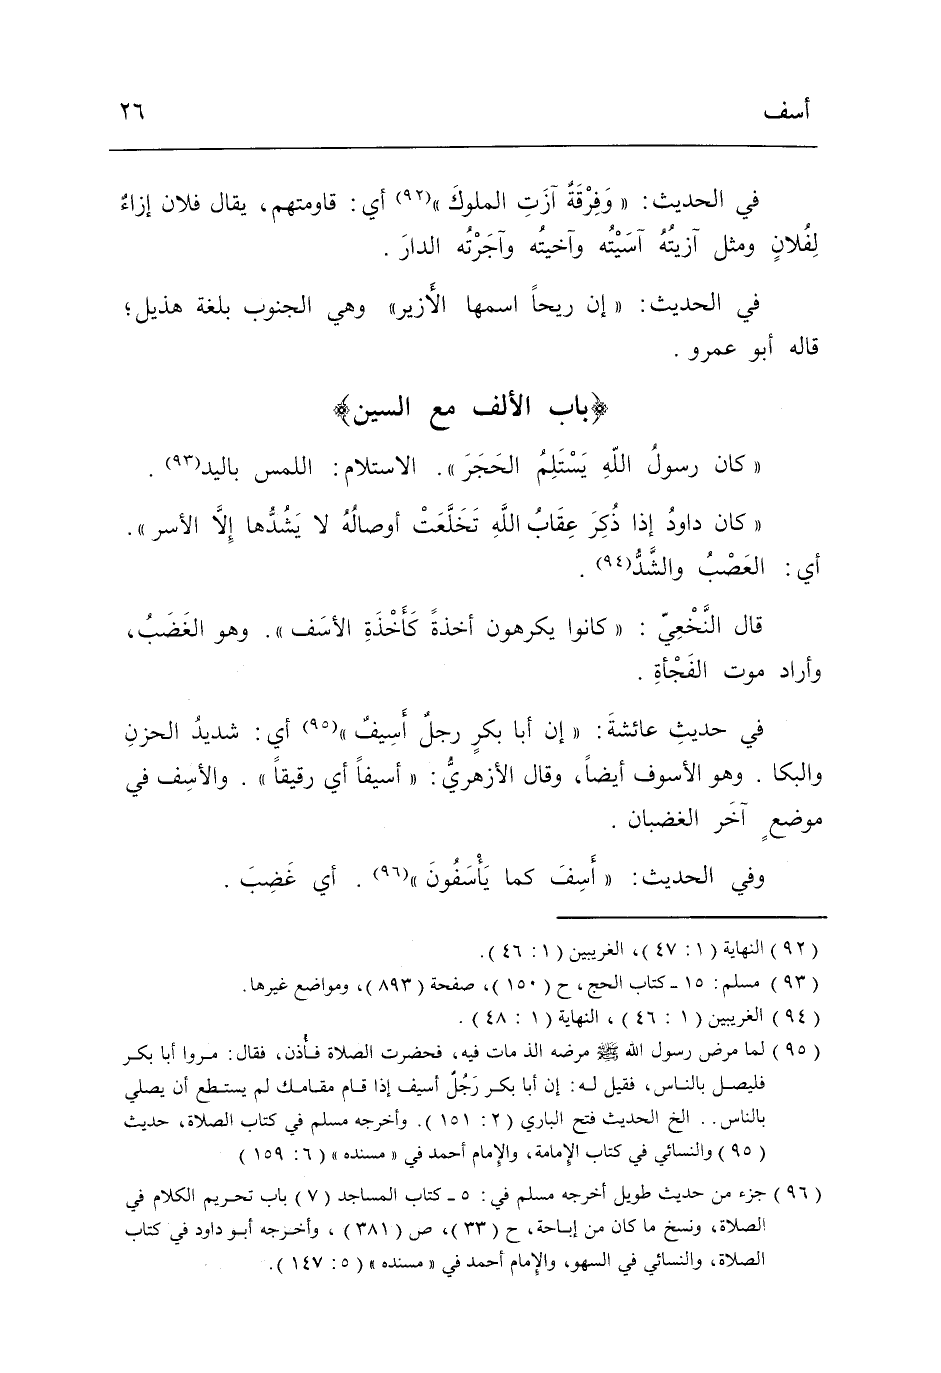 أسف ٢٦
في الحديث : « وَفِرْقَةٌ آزَتِ الملوكَ »(٩٢) أي : قاومتهم ، يقال فلان إزاءُ
لِفُلانٍ ومثل آزيتُهُ آسَيْتُه وآخيتُه وآجَرْتُه الدارَ .
في الحديث : « إن ريحاً اسمها الأَزير» وهي الجنوب بلغة هذيل ؛
قاله أبو عمرو .
﴿باب الألف مع السين﴾
« كان رسولُ اللّهِ يَسْتَلِمُ الحَجَرَ » . الاستلام : اللمس باليد(٩٣) .
« كان داودُ إذا ذُكِرَ عِقَابُ اللَّهِ تَخَلَّعَتْ أوصالُهُ لا يَشُدُّها إِلَّا الأسر » .
أي : العَصْبُ والشَّدُّ(٩٤) .
قال النَّخْعِيّ : « كانوا يكرهون أخذةً كَأَخْذَةِ الأسَف » . وهو الغَضَبُ ،
وأراد موت الفَجْأةِ .
في حديثِ عائشةَ : « إن أبا بكرٍ رجلٌ أَسِيفٌ »(٩٥) أي : شديدُ الحزنِ
والبكا . وهو الأسوف أيضاً ، وقال الأزهريُّ : « أسيفاً أي رقيقاً » . والأسِف في
موضعٍ آخَر الغضبان .
وفي الحديث : « أَسِفَ كما يَأْسَفُونَ »(٩٦) . أي غَضِبَ .
( ٩٢ ) النهاية ( ١ : ٤٧ ) ، الغريبين ( ١ : ٤٦ ) .
( ٩٣ ) مسلم : ١٥ ـ كتاب الحج ، ح ( ١٥٠ ) ، صفحة ( ٨٩٣ ) ، ومواضع غيرها .
( ٩٤ ) الغريبين ( ١ : ٤٦ ) ، النهاية ( ١ : ٤٨ ) .
( ٩٥ ) لما مرض رسول الله ﷺ مرضه الذ مات فيه ، فحضرت الصلاة فأُذن ، فقال : مروا أبا بكر
فليصل بالناس ، فقيل له : إن أبا بكر رَجُلٌ أسيف إذا قام مقامك لم يستطع أن يصلي
بالناس . . الخ الحديث فتح الباري ( ٢ : ١٥١ ) . وأخرجه مسلم في كتاب الصلاة ، حديث
( ٩٥ ) والنسائي في كتاب الإمامة ، والإمام أحمد في « مسنده » ( ٦ : ١٥٩ )
( ٩٦ ) جزء من حديث طويل أخرجه مسلم في : ٥ ـ كتاب المساجد ( ٧ ) باب تحريم الكلام في
الصلاة ، ونسخ ما كان من إباحة ، ح ( ٣٣ ) ، ص ( ٣٨١ ) ، وأخرجه أبو داود في كتاب
الصلاة ، والنسائي في السهو ، والإمام أحمد في « مسنده » ( ٥ : ١٤٧ ) .